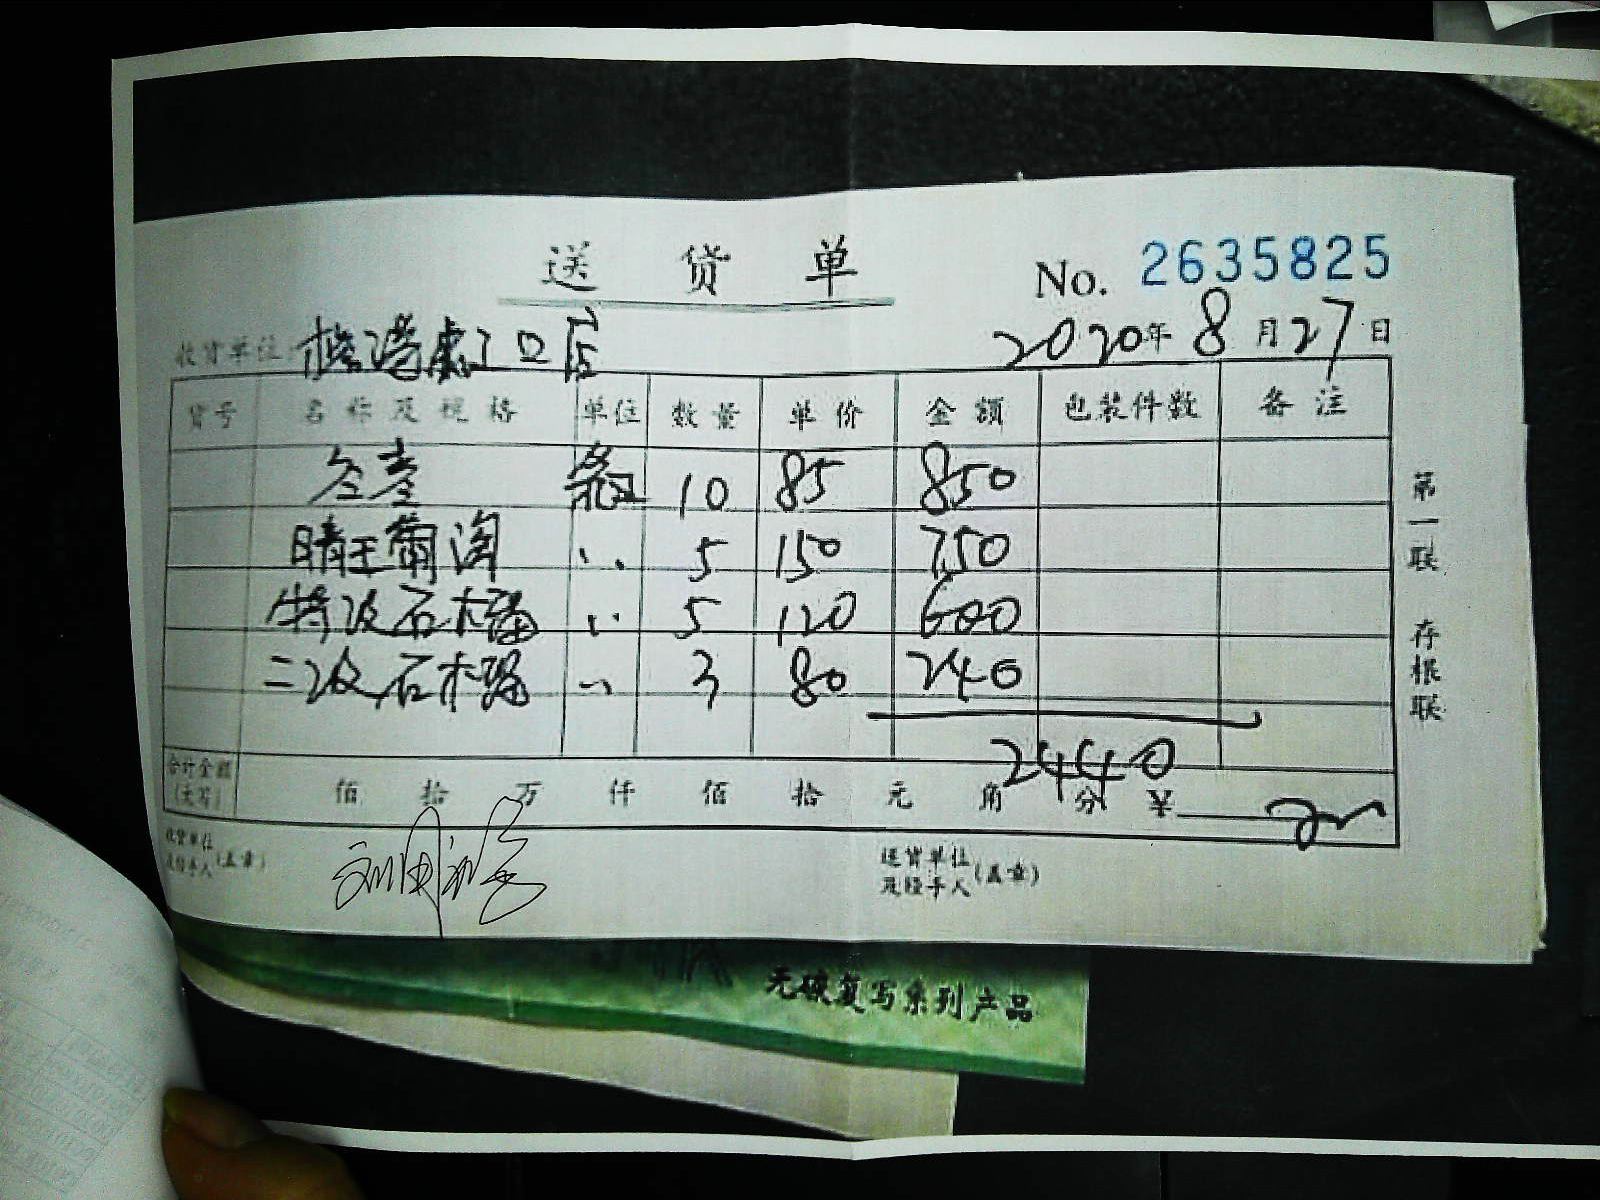 送 货 单
No. 2635825
收货单位 桂湾虎门口店
2020年 8月27日
货号 名称及规格 单位 数量 单价 金额 包装件数 备注
10 85 850
晴王葡萄 〃 5 150 750
特级石榴 〃 5 120 600
二级石榴 〃 3 80 240
2440
合计金额(大写) 佰 拾 万 仟 佰 拾 元 角 分 ¥
收货单位及经手人(盖章)
送货单位及经手人(盖章)
第一联 存根联
无碳复写系列产品